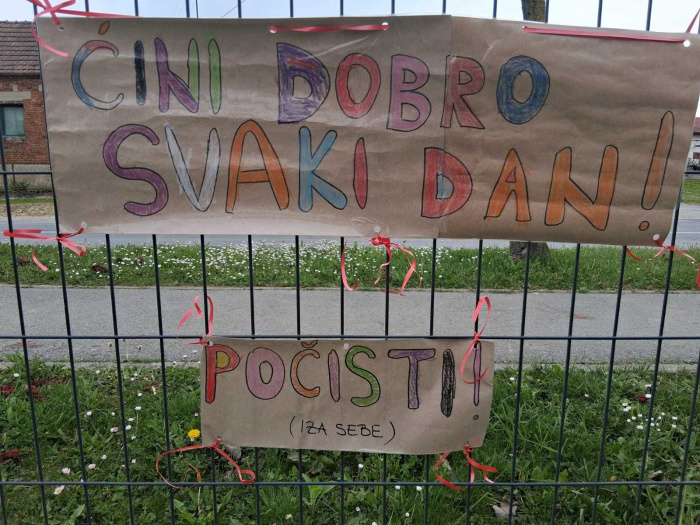 ĆINI DOBRO
SVAKI DAN!
POČISTI!
(IZA SEBE)